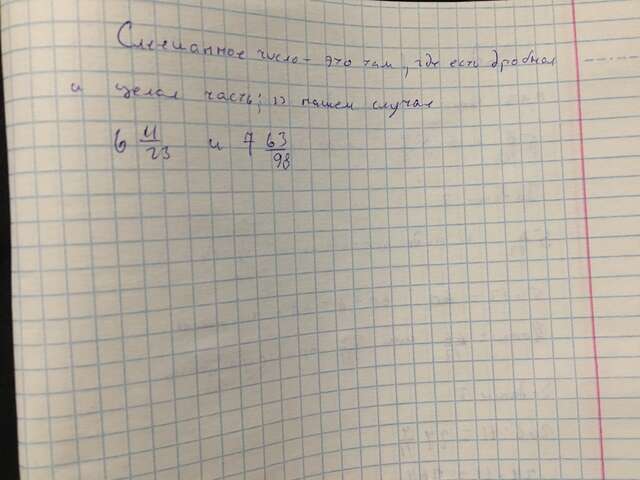 Смешанное число - это там, где есть дробная
и целая часть; в нашем случае
6 11/23 и 7 63/98